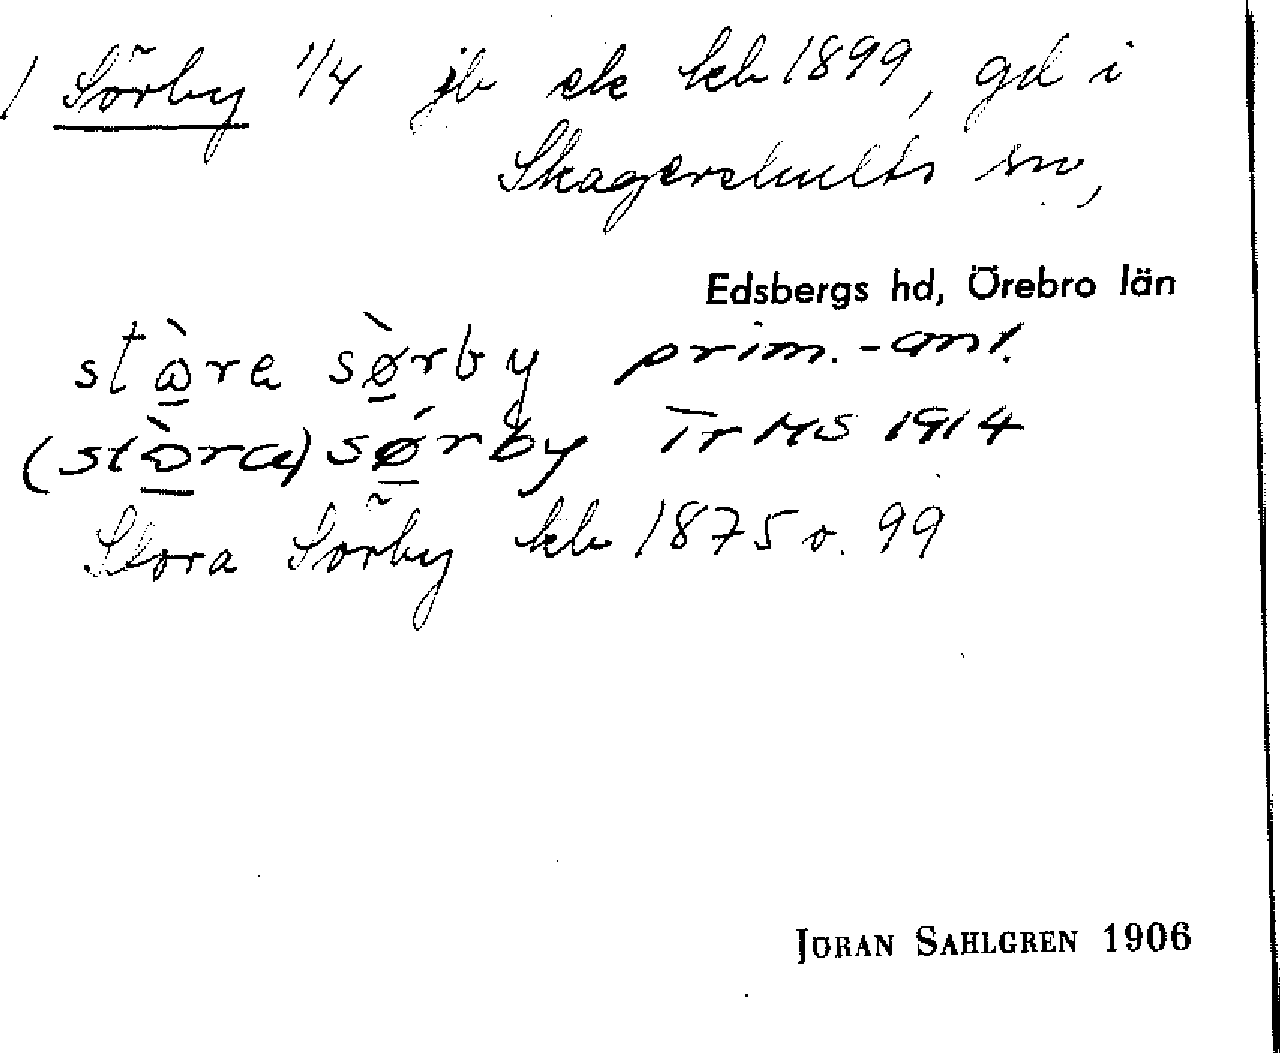 / Sörby 1/4 jb ek kb 1899, gd i
Skagershults sn,
Edsbergs hd, Örebro län
stὼ̲ra sø̲̀rby prim.-ant.
(stὼ̲ra) sǿ̲rby Tr MS 1914
Stora Sörby kb 1875 o. 99
JÖRAN SAHLGREN 1906